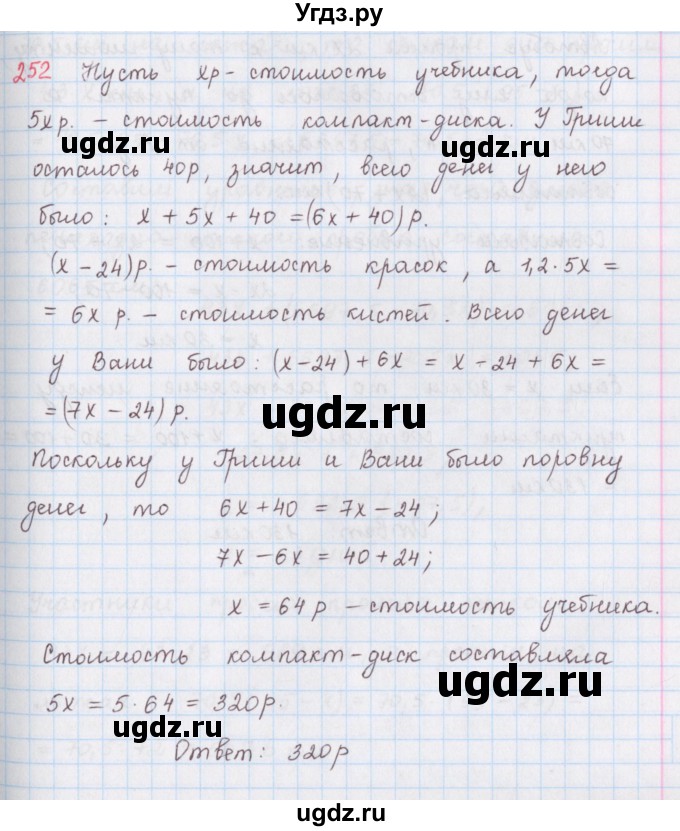 Угдз.ру
252 Пусть хр - стоимость учебника, тогда
5хр. - стоимость компакт-диска. У Гриши
ugdz.ru
ugdz.ru
осталось 40р, значит, всего денег у него
было: х + 5х + 40 = (6х + 40) р.
(х - 24)р. - стоимость красок, а 1,2 · 5х =
= 6х р. - стоимость кистей. Всего денег
у Вани было: (х-24) + 6х = х - 24 + 6х =
= (7х - 24) р.
ugdz.ru
Поскольку у Гриши и Вани было поровну
денег, то 6х + 40 = 7х - 24;
7х - 6х = 40 + 24;
х = 64 р - стоимость учебника.
Стоимость компакт-диск составляла
ugdz.ru
5х = 5 · 64 = 320р.
ugdz.ru
Ответ: 320р
ugdz.ru